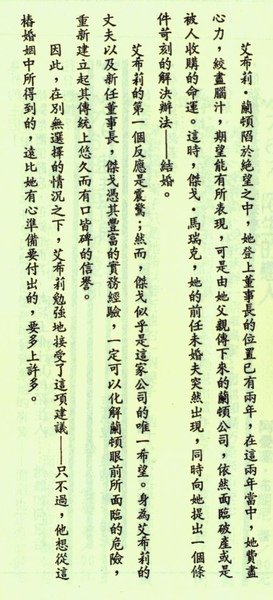 艾希莉·蘭頓陷於絕望之中，她登上董事長的位置已有兩年，在這兩年當中，她費盡
心力，絞盡腦汁，期望能有所表現，可是由她父親傳下來的蘭頓公司，依然面臨破產或是
被人收購的命運。這時，傑戈·馬瑞克，她的前任未婚夫突然出現，同時向她提出一個條
件苛刻的解決辦法——結婚
艾希莉的第一個反應是震驚；然而，傑戈似乎是這家公司的唯一希望。身為艾希莉的
丈夫以及新任董事長，傑戈憑其豐富的實務經驗，一定可以化解蘭頓眼前所面臨的危險，
重新建立起其傳統上悠久而有口皆碑的信譽。
因此，在別無選擇的情況之下，艾希莉勉強地接受了這項建議——只不過，他想從這
樁婚姻中所得到的，遠比她有心準備要付出的，要多上許多。